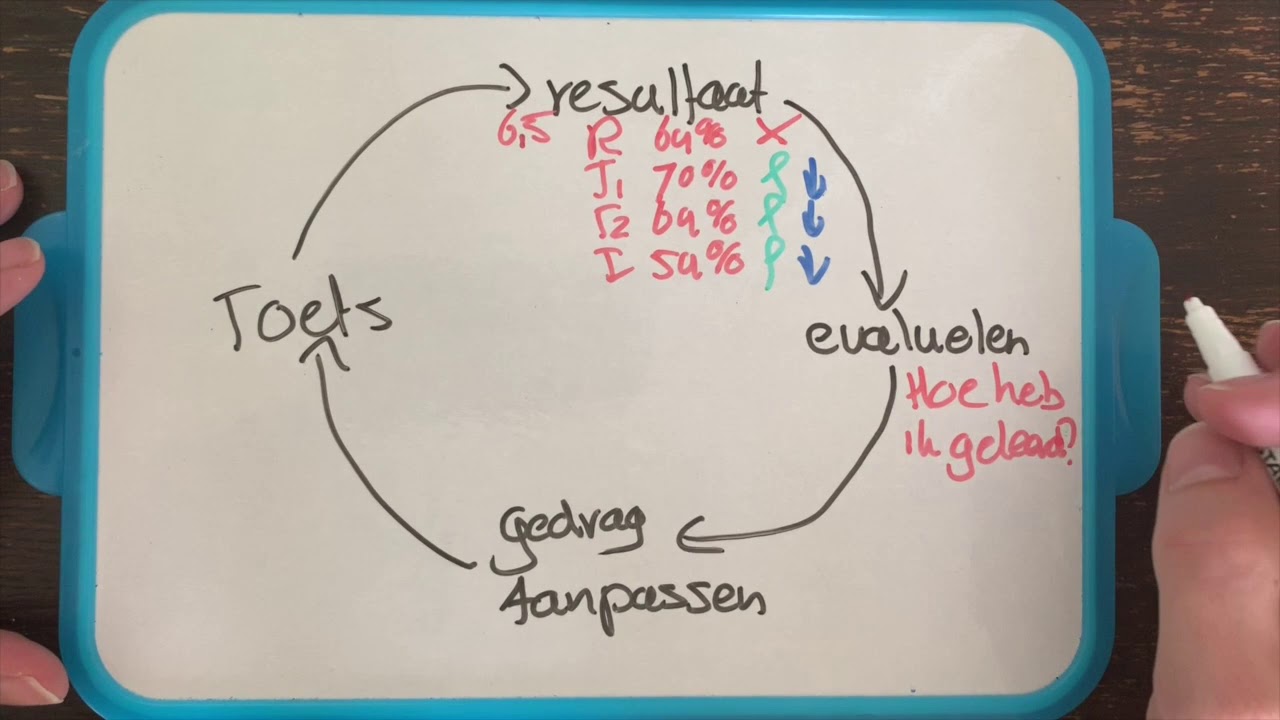 resultaat
6,5 R 64% X
T1 70% ↓
T2 64% ↓
I 54% ↓
Toets
evalueren
Hoe heb
ik geleerd?
gedrag
Aanpassen